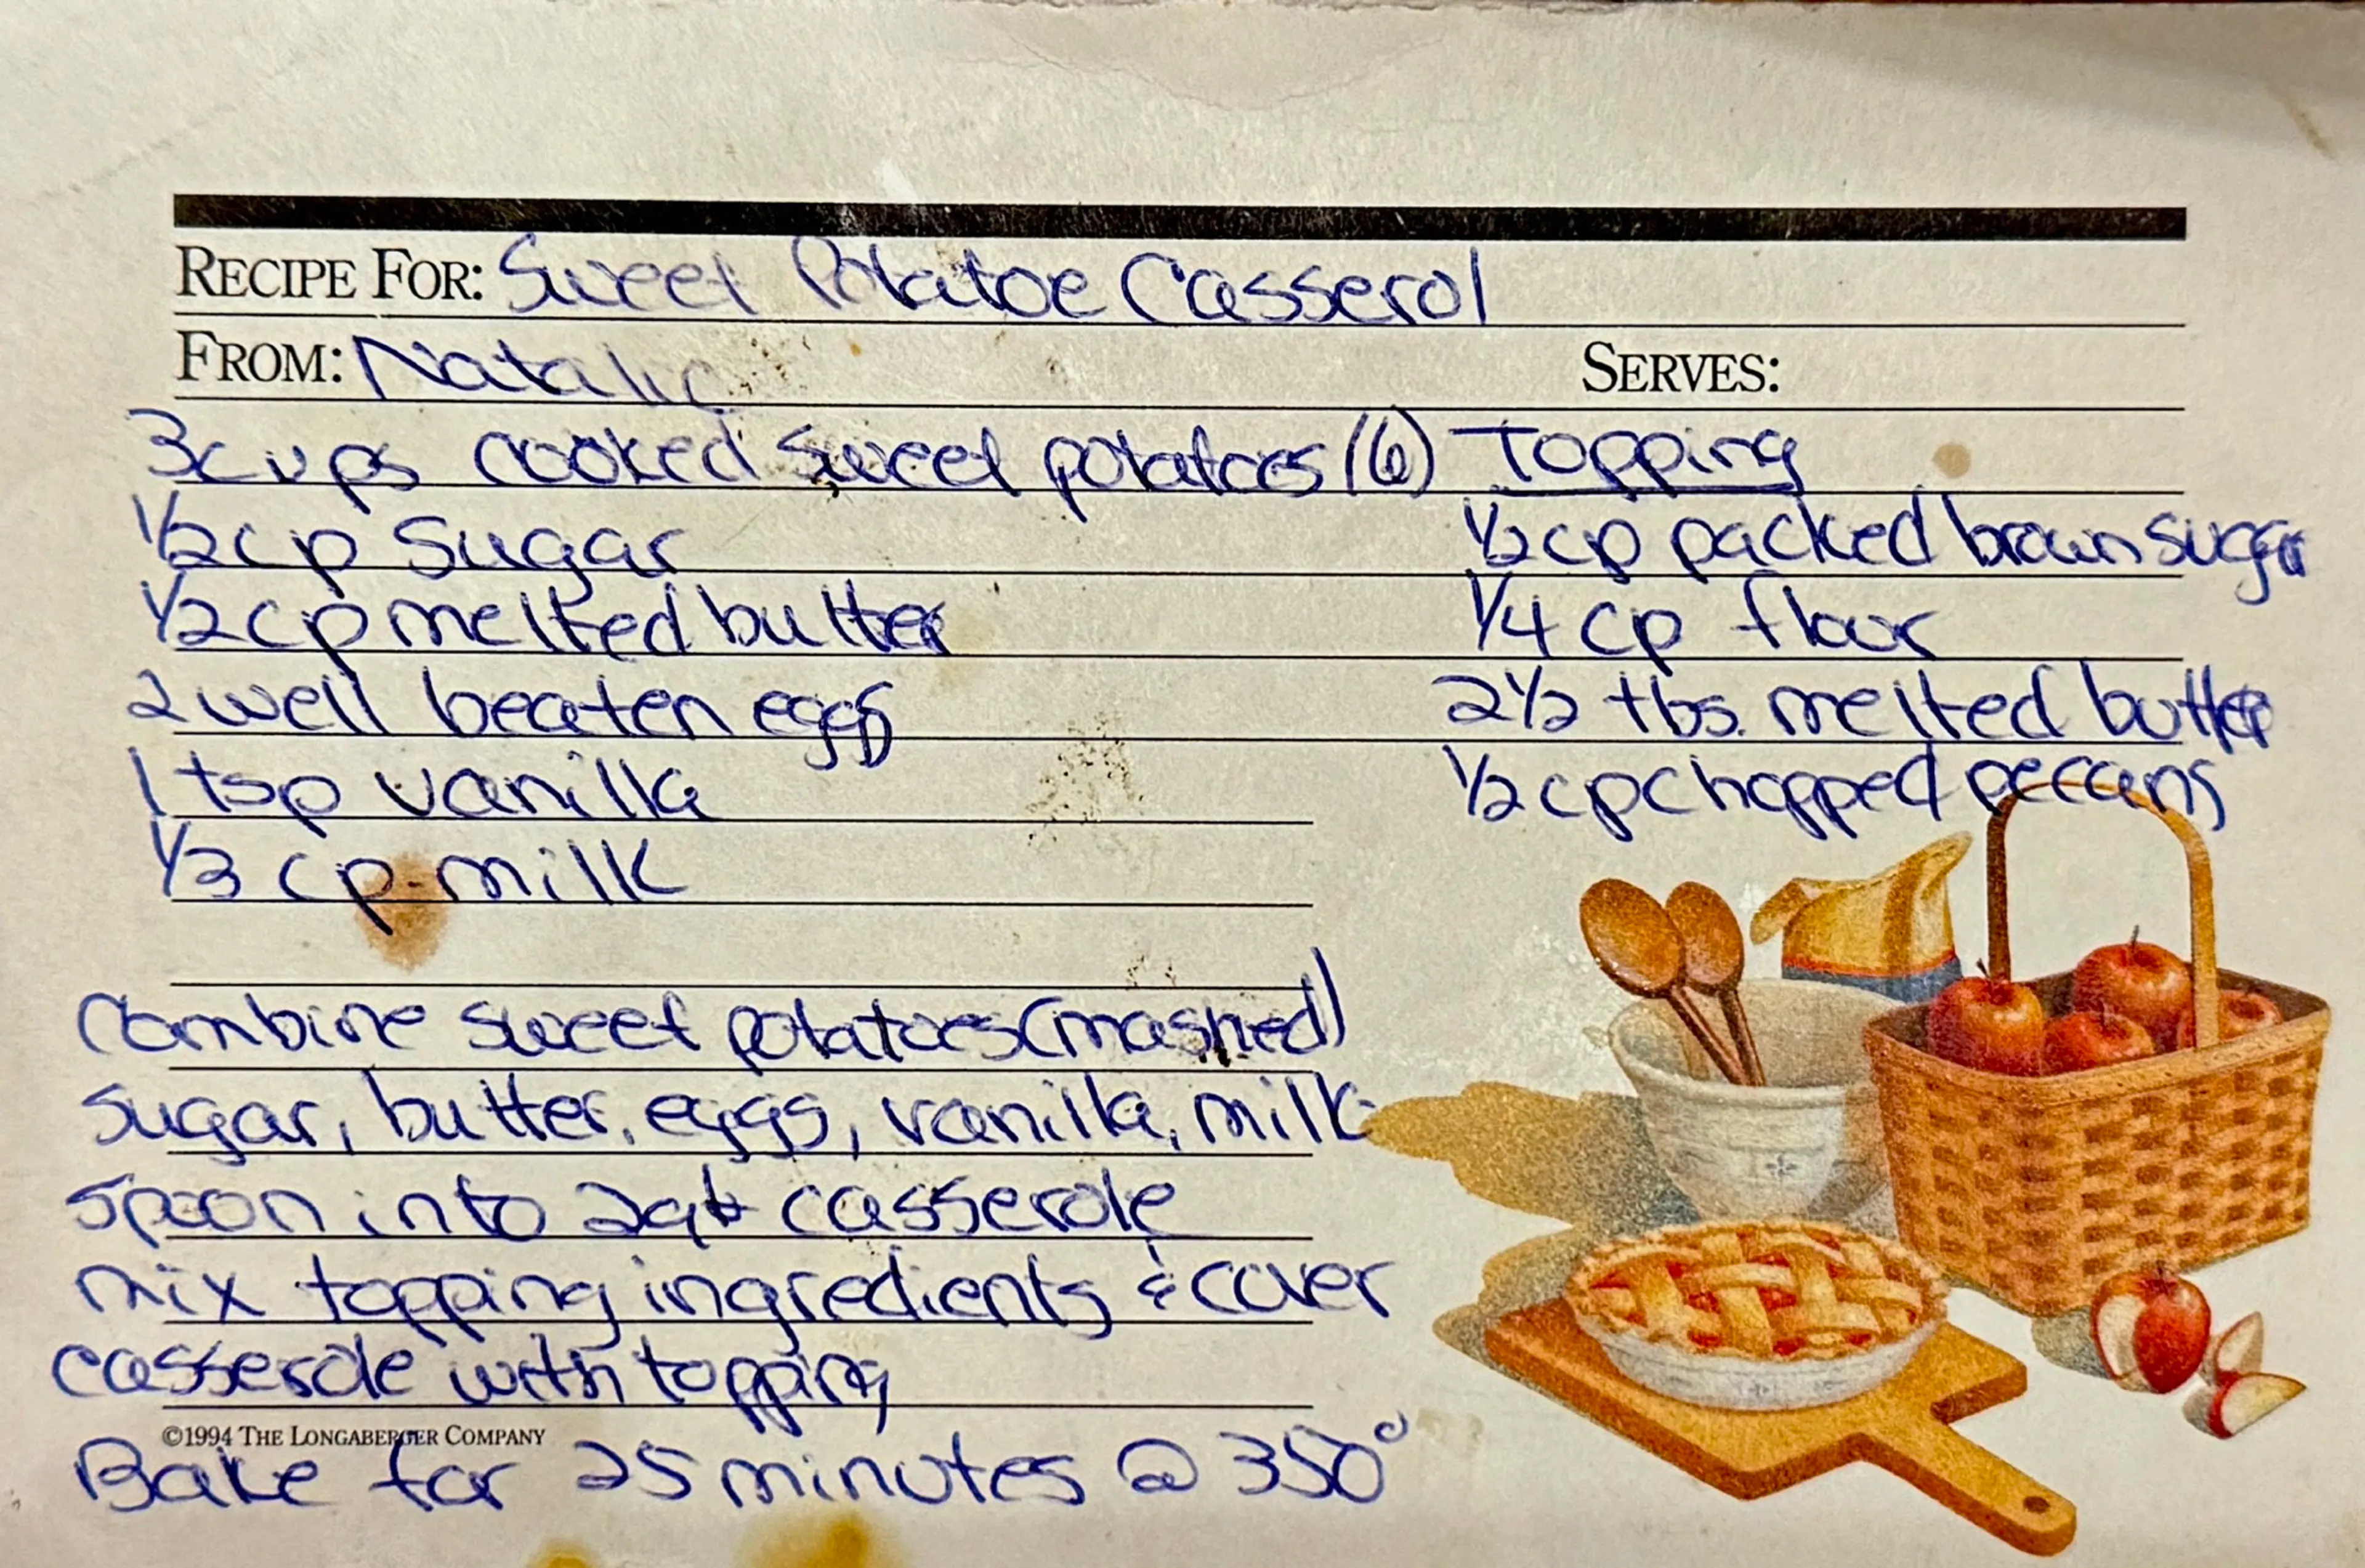 RECIPE FOR: Sweet Potatoe Casserol
FROM: Natalie
SERVES:
3cups cooked sweet potatoes (6)
1/2 cp sugar
1/2 cp melted butter
2 well beaten eggs
1 tsp vanilla
1/3 cp milk
Topping
1/2 cp packed brown sugar
1/4 cp floor
2 1/2 tbs. melted butter
1/2 cp chopped peccans
Combine sweet potatoes (mashed)
sugar, butter, eggs, vanilla, milk
spoon into 2qt casserole
mix topping ingredients & cover
casserole with topping
©1994 THE LONGABERGER COMPANY
Bake for 25 minutes @ 350°